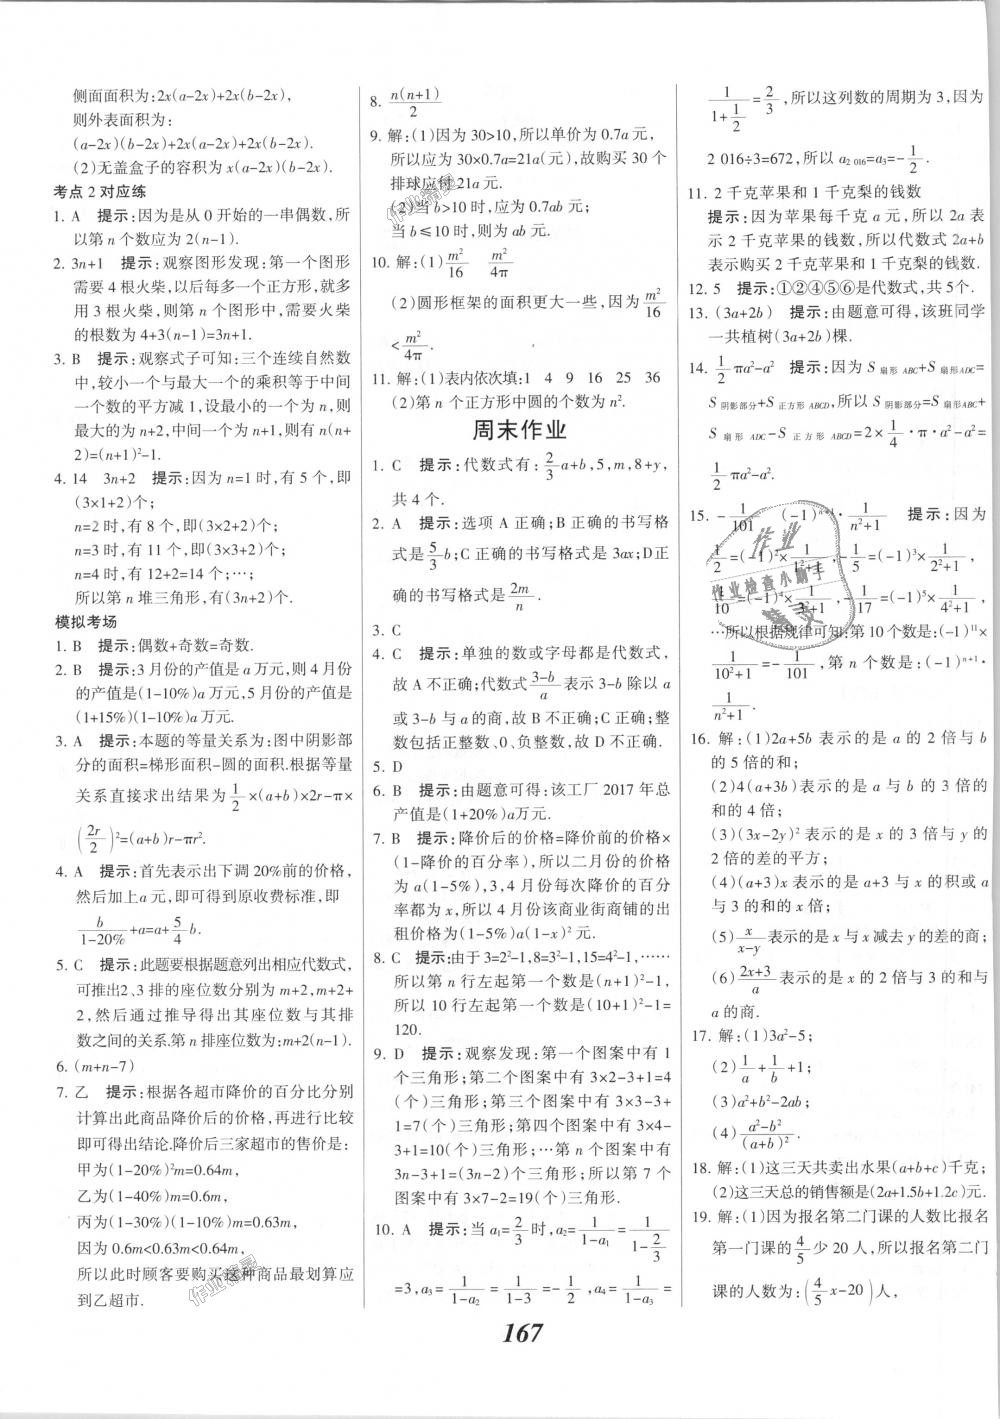 侧面面积为:2x(a-2x)+2x(b-2x),
则外表面积为:
(a-2x)(b-2x)+2x(a-2x)+2x(b-2x).
(2)无盖盒子的容积为 x(a-2x)(b-2x).
考点 2 对应练
1. A 提示:因为是从 0 开始的一串偶数,所
以第 n 个数应为 2(n-1).
2. 3n+1 提示:观察图形发现:第一个图形
需要 4 根火柴,以后每多一个正方形,就多
用 3 根火柴,则第 n 个图形中,需要火柴
的根数为 4+3(n-1)=3n+1.
3. B 提示:观察式子可知:三个连续自然数
中,较小一个与最大一个的乘积等于中间
一个数的平方减 1,设最小的一个为 n,则
最大的为 n+2,中间一个为 n+1,则有 n(n+
2)=(n+1)²-1.
4. 14 3n+2 提示:因为 n=1 时,有 5 个,即
(3×1+2)个;
n=2 时,有 8 个,即(3×2+2)个;
n=3 时,有 11 个,即(3×3+2)个;
n=4 时,有 12+2=14 个;…;
所以第 n 堆三角形,有(3n+2)个.
模拟考场
1. B 提示:偶数+奇数=奇数.
2. B 提示:3 月份的产值是 a 万元,则 4 月份
的产值是(1-10%)a 万元,5 月份的产值是
(1+15%)(1-10%)a 万元.
3. A 提示:本题的等量关系为:图中阴影部
分的面积=梯形面积-圆的面积.根据等量
关系直接求出结果为 1/2 ×(a+b)×2r-π×
(2r/2)²=(a+b)r-πr².
4. A 提示:首先表示出下调 20%前的价格,
然后加上 a 元,即可得到原收费标准,即
b/(1-20%)+a=a+5/4 b.
5. C 提示:此题要根据题意列出相应代数式,
可推出2、3 排的座位数分别为 m+2,m+2+
2,然后通过推导得出其座位数与其排
数之间的关系.第 n 排座位数为:m+2(n-1).
6. (m+n-7)
7. 乙 提示:根据各超市降价的百分比分别
计算出此商品降价后的价格,再进行比较
即可得出结论.降价后三家超市的售价是:
甲为(1-20%)²m=0.64m,
乙为(1-40%)m=0.6m,
丙为(1-30%)(1-10%)m=0.63m,
因为 0.6m<0.63m<0.64m,
所以此时顾客要购买这种商品最划算应
到乙超市.
8. n(n+1)/2
9. 解:(1)因为 30>10,所以单价为 0.7a 元,
所以应为 30×0.7a=21a(元),故购买 30 个
排球应付 21a 元.
(2)当 b>10 时,应为 0.7ab 元;
当 b≤10 时,则为 ab 元.
10. 解:(1) m²/16 m²/4π
(2)圆形框架的面积更大一些,因为 m²/16
< m²/4π.
11. 解:(1)表内依次填:1 4 9 16 25 36
(2)第 n 个正方形中圆的个数为 n².
周末作业
1. C 提示:代数式有: 2/3 a+b,5,m,8+y,
共 4 个.
2. A 提示:选项 A 正确;B 正确的书写格
式是 5/3 b;C 正确的书写格式是 3ax;D正
确的书写格式是 2m/n.
3. C
4. C 提示:单独的数或字母都是代数式,
故 A 不正确;代数式 (3-b)/a 表示 3-b 除以 a
或 3-b 与 a 的商,故 B 不正确;C 正确;整
数包括正整数、0、负整数,故 D 不正确.
5. D
6. B 提示:由题意可得:该工厂 2017 年总
产值是(1+20%)a万元.
7. B 提示:降价后的价格=降价前的价格×
(1-降价的百分率),所以二月份的价格
为 a(1-5%),3,4 月份每次降价的百分
率都为 x,所以 4 月份该商业街商铺的出
租价格为(1-5%)a(1-x)² 元.
8. C 提示:由于 3=2²-1,8=3²-1,15=4²-1,……
所以第 n 行左起第一个数是(n+1)²-1,
所以 10 行左起第一个数是(10+1)²-1=
120.
9. D 提示:观察发现:第一个图案中有 1
个三角形;第二个图案中有 3×2-3+1=4
(个)三角形;第三个图案中有 3×3-3+
1=7(个)三角形;第四个图案中有 3×4-
3+1=10(个)三角形;…第 n 个图案中有
3n-3+1=(3n-2)个三角形;所以第 7 个
图案中有 3×7-2=19(个)三角形.
10. A 提示:当 a₁=2/3 时,a₂=1/(1-a₁)=1/(1-2/3)
=3,a₃=1/(1-a₂)=1/(1-3)=-1/2,a₄=1/(1-a₃)=
1/(1+1/2)=2/3,所以这列数的周期为 3,因为
2 016÷3=672,所以 a₂ ₀₁₆=a₃=-1/2.
11. 2 千克苹果和 1 千克梨的钱数
提示:因为苹果每千克 a 元,所以 2a 表
示 2 千克苹果的钱数,所以代数式 2a+b
表示购买 2 千克苹果和 1 千克梨的钱数.
12. 5 提示:①②④⑤⑥是代数式,共 5个.
13. (3a+2b) 提示:由题意可得,该班同学
一共植树(3a+2b)棵.
14. 1/2 πa²-a² 提示:因为 S扇形ABC+S扇形ADC=
S阴影部分+S正方形ABCD,所以 S阴影部分=S扇形ABC+
S扇形ADC-S正方形ABCD=2×1/4·π·a²-a²=
1/2 πa²-a².
15. -1/101 (-1)ⁿ⁺¹·1/(n²+1) 提示:因为
1/2=(-1)²×1/(1²+1),-1/5=(-1)³×1/(2²+1),
1/10=(-1)⁴×1/(3²+1),-1/17=(-1)⁵×1/(4²+1),
…所以根据规律可知:第 10 个数是:(-1)¹¹×
1/(10²+1)=-1/101,第 n 个数是:(-1)ⁿ⁺¹·
1/(n²+1).
16. 解:(1)2a+5b 表示的是 a 的 2 倍与 b
的 5 倍的和;
(2)4(a+3b)表示的是 a 与 b 的 3 倍的
和的 4 倍;
(3)(3x-2y)² 表示的是 x 的 3 倍与 y 的
2 倍的差的平方;
(4)(a+3)x 表示的是 a+3 与 x 的积或 a
与 3 的和的 x 倍;
(5) x/(x-y) 表示的是 x 与 x 减去 y 的差的商;
(6) (2x+3)/a 表示的是 x 的 2 倍与 3 的和与
a 的商.
17. 解:(1)3a²-5;
(2) 1/a+1/b+1;
(3)a²+b²-2ab;
(4) (a²-b²)/(a+b)².
18. 解:(1)这三天共卖出水果(a+b+c)千克;
(2)这三天总的销售额是(2a+1.5b+1.2c)元.
19. 解:(1)因为报名第二门课的人数比报名
第一门课的 4/5 少 20 人,所以报名第二门
课的人数为:(4/5 x-20)人,
167
作业
作业检查小助手
精灵
作业精灵
作业精灵